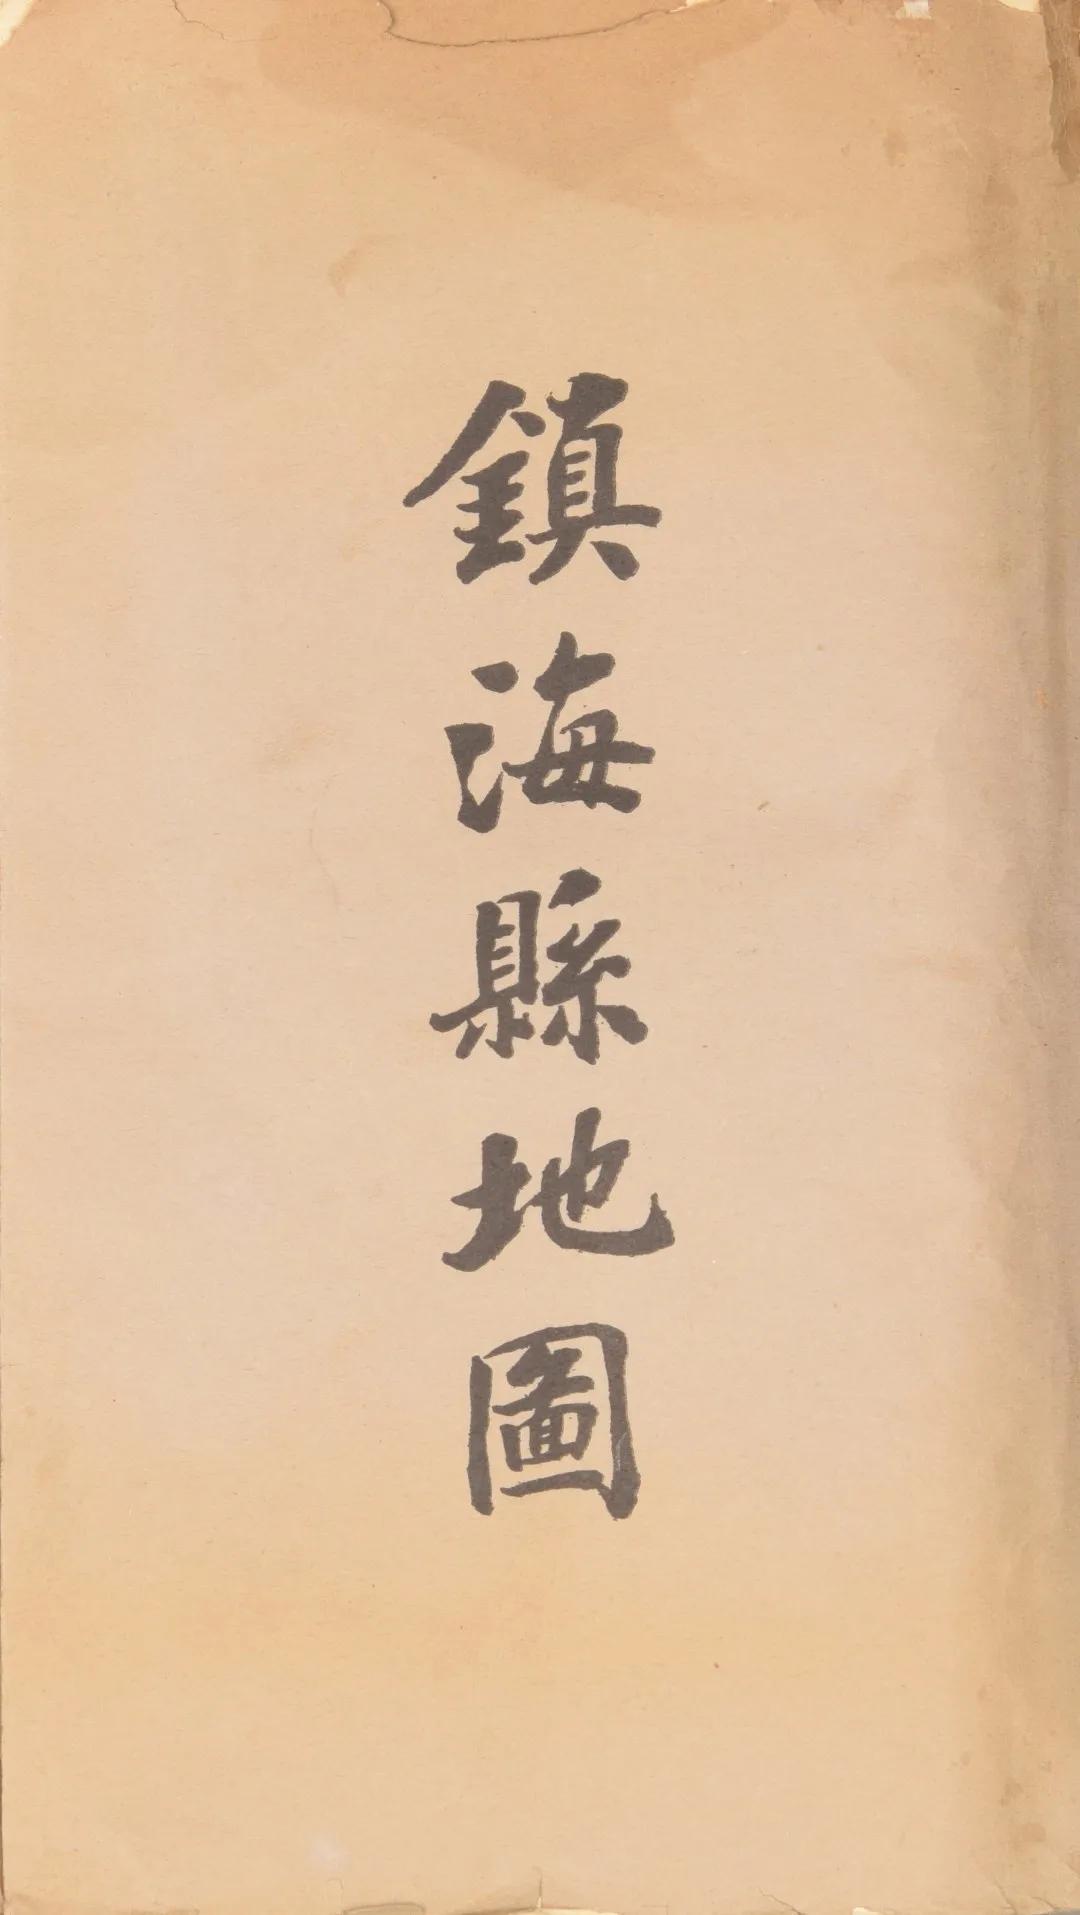 鎮海縣地圖